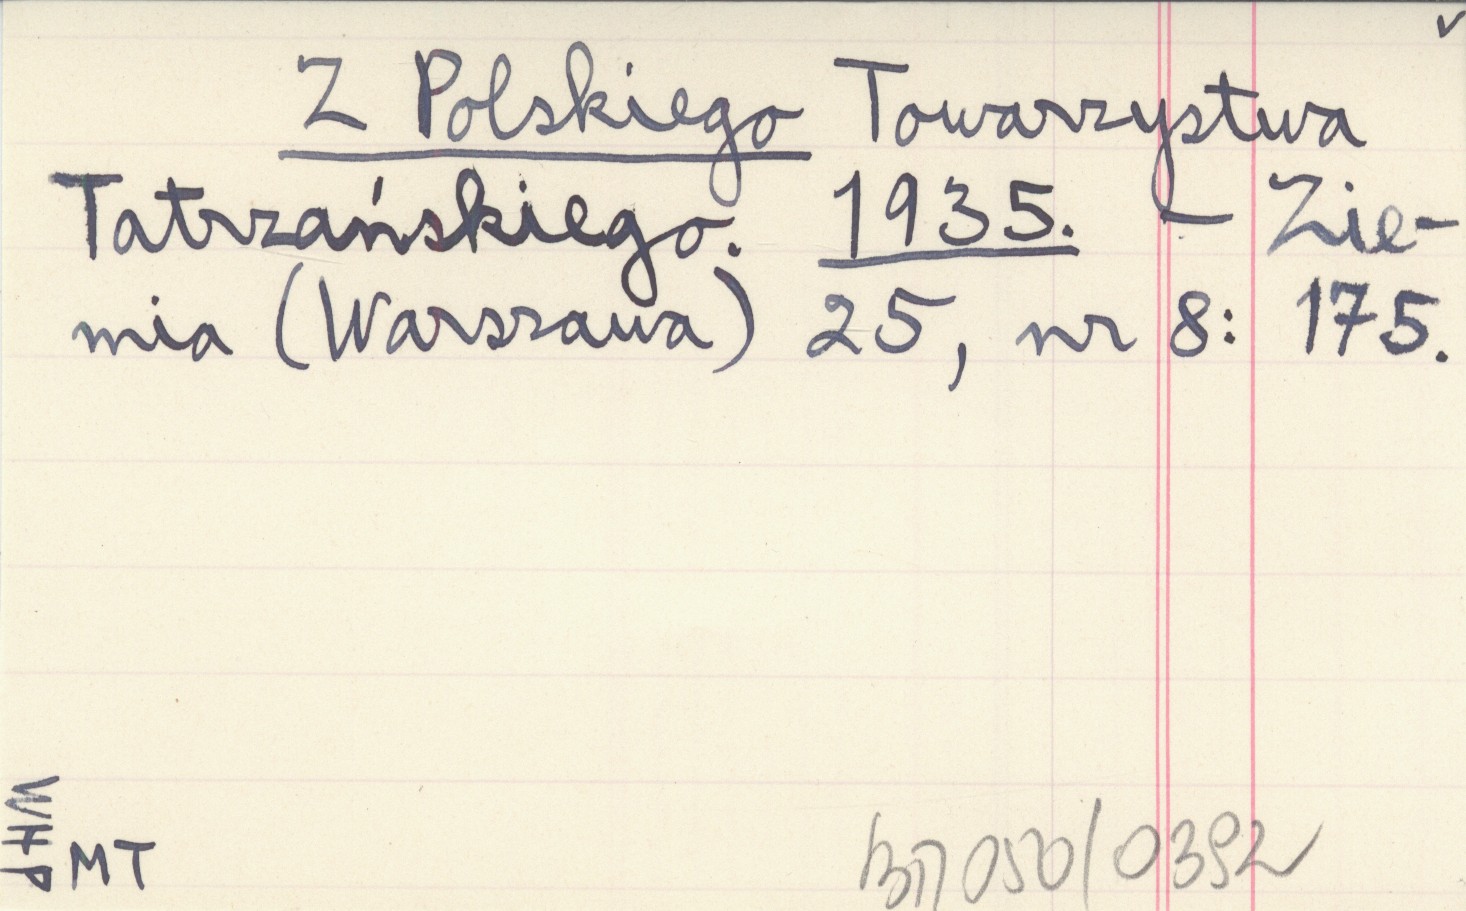 Z Polskiego Towarzystwa
Tatrzańskiego. 1935. – Zie-
mia (Warszawa) 25, nr 8: 175.
WHP
MT